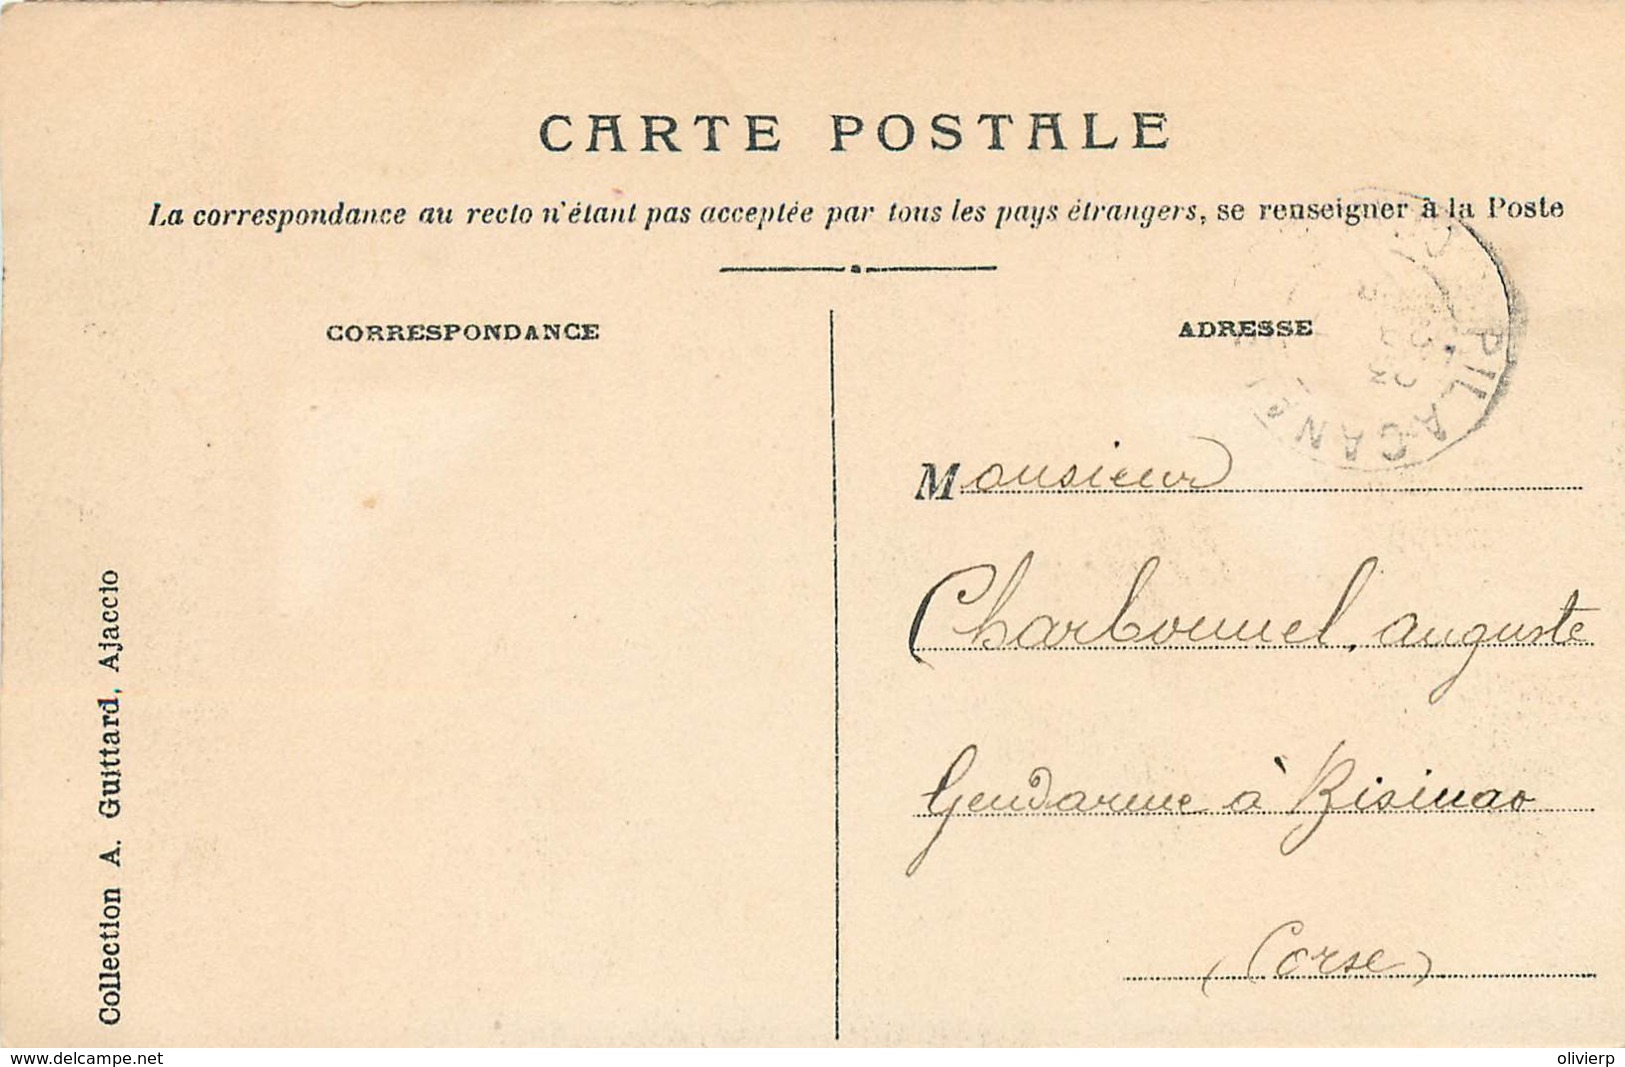 CARTE POSTALE
La correspondance au recto n'étant pas acceptée par tous les pays étrangers, se renseigner à la Poste
CORRESPONDANCE
ADRESSE
PILA CANALE
Monsieur
Charbonnel, auguste
Gendarme à Bisinao
(Corse)
Collection A. Guittard, Ajaccio
www.delcampe.net
olivierp